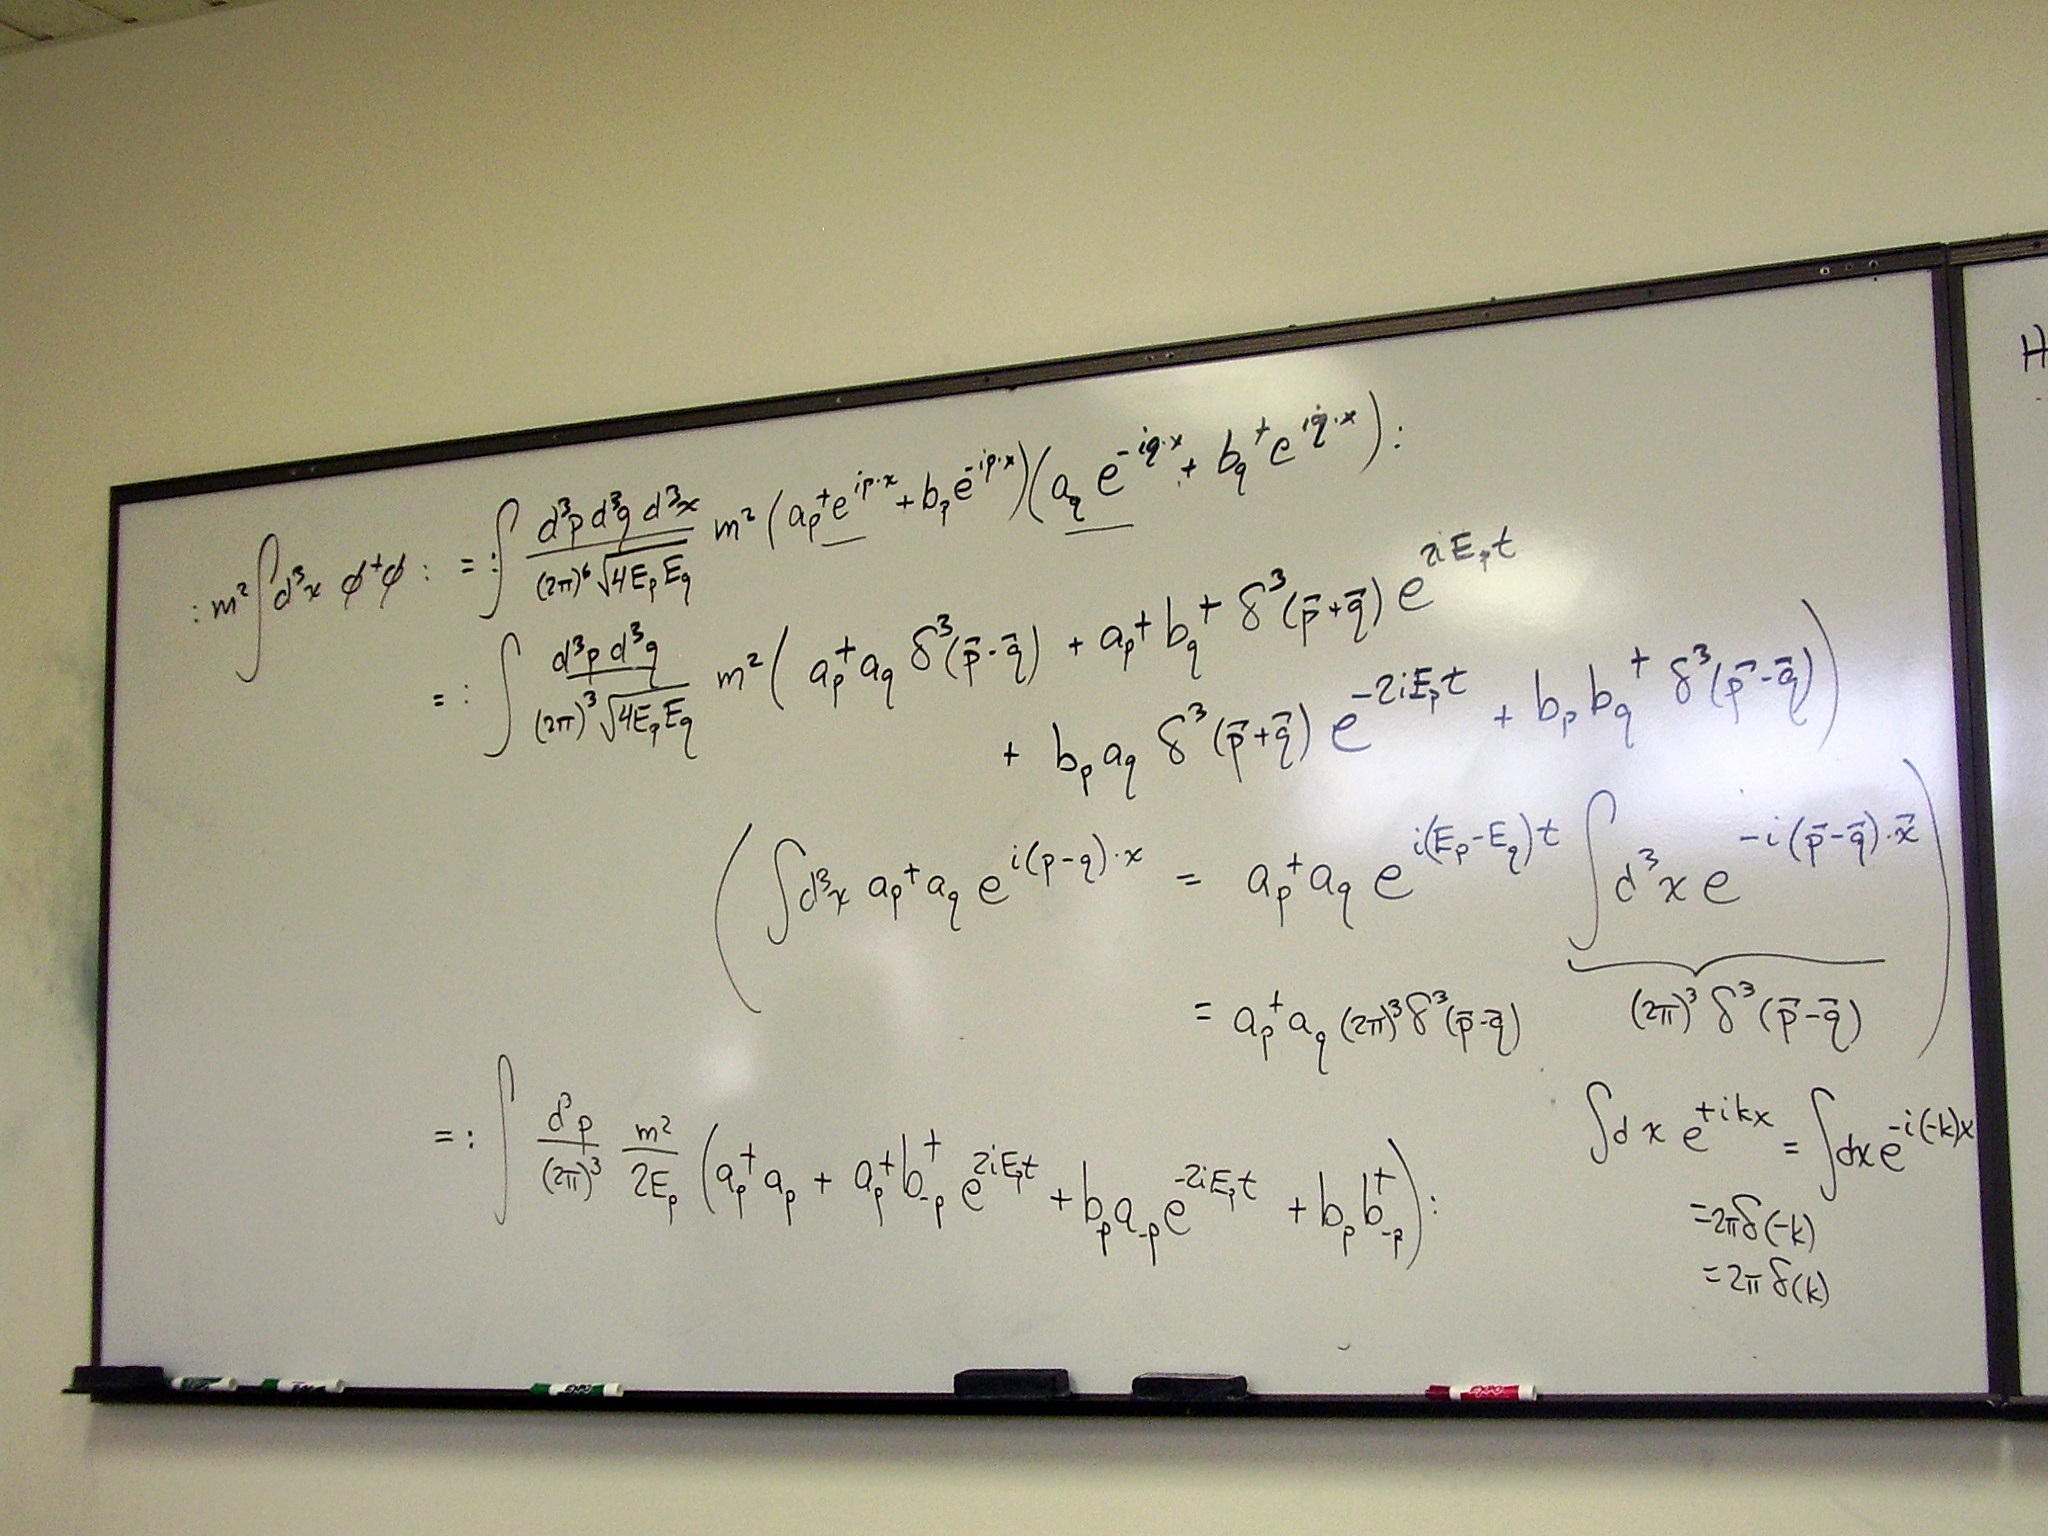 : m² ∫ d³x φ†φ : = : ∫ d³p d³q d³x / (2π)⁶ √(4E_p E_q) m² ( a_p† e^{ip·x} + b_p e^{-ip·x} ) ( a_q e^{-iq·x} + b_q† e^{iq·x} ) :
= : ∫ d³p d³q / (2π)³ √(4E_p E_q) m² ( a_p† a_q δ³(p⃗-q⃗) + a_p† b_q† δ³(p⃗+q⃗) e^{2iE_p t}
+ b_p a_q δ³(p⃗+q⃗) e^{-2iE_p t} + b_p b_q† δ³(p⃗-q⃗) )
( ∫ d³x a_p† a_q e^{i(p-q)·x} = a_p† a_q e^{i(E_p-E_q)t} ∫ d³x e^{-i(p⃗-q⃗)·x⃗} )
= a_p† a_q (2π)³ δ³(p⃗-q⃗) (2π)³ δ³(p⃗-q⃗)
= : ∫ d³p / (2π)³ m² / 2E_p ( a_p† a_p + a_p† b_{-p}† e^{2iE_p t} + b_p a_{-p} e^{-2iE_p t} + b_p b_{-p}† ) :
∫ dx e^{+ikx} = ∫ dx e^{-i(-k)x}
= 2π δ(-k)
= 2π δ(k)
H
EXPO
EXPO